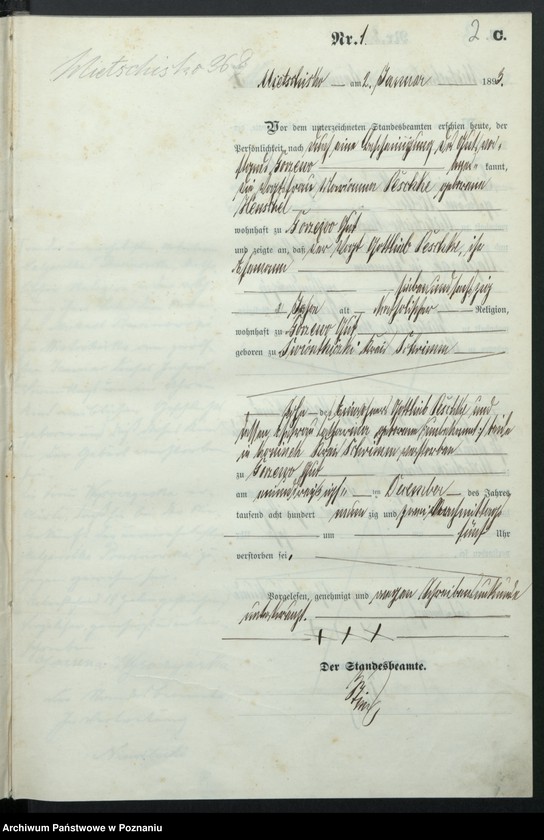 Nr. 1. 2 C.
Mietschisko 
Mietschisko am 2. Januar 1893.
Vor dem unterzeichneten Standesbeamten erschien heute, der
Persönlichkeit nach durch eine Bescheinigung des Gutsvor-
stands Gorzewo kannt,
die Vogtsfrau Marianna Peschke geborene
Henschel
wohnhaft zu Gorzewo Gut
und zeigte an, daß der Vogt Gottlieb Peschke, ihr
Ehemann
siebenundsechzig
Jahre alt katholischer Religion,
wohnhaft zu Gorzewo Gut
geboren zu Kreis Schrimm
Sohn des Gottlieb Peschke und
dessen Ehefrau Catharina geborene (unbekannt) beide
in Kreis Schrimm verstorben
zu Gorzewo Gut
am einunddreißigsten Dezember des Jahres
tausend acht hundert neunzig und zwei Nachmittags
um fünf Uhr
verstorben sei.
Vorgelesen, genehmigt und wegen Schreibensunkunde
unterkreuzt.
+ + +
Der Standesbeamte.
Archiwum Państwowe w Poznaniu